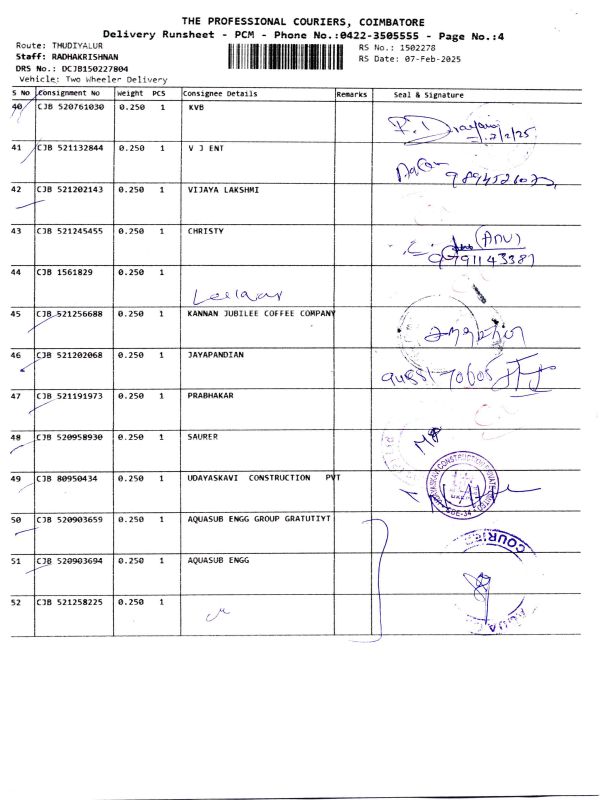 THE PROFESSIONAL COURIERS, COIMBATORE
Delivery Runsheet - PCM - Phone No.:0422-3505555 - Page No.:4
Route: THUDIYALUR RS No.: 1502278
Staff: RADHAKRISHNAN RS Date: 07-Feb-2025
DRS No.: DCJB150227804
Vehicle: Two Wheeler Delivery
S No Consignment No Weight PCS Consignee Details Remarks Seal & Signature
40 CJB 520761030 0.250 1 KVB
41 CJB 521132844 0.250 1 V J ENT
42 CJB 521202143 0.250 1 VIJAYA LAKSHMI
43 CJB 521245455 0.250 1 CHRISTY (ANU)
9791143387
44 CJB 1561829 0.250 1
45 CJB 521256688 0.250 1 KANNAN JUBILEE COFFEE COMPANY
46 CJB 521202068 0.250 1 JAYAPANDIAN
47 CJB 521191973 0.250 1 PRABHAKAR
48 CJB 520958930 0.250 1 SAURER
49 CJB 80950434 0.250 1 UDAYASKAVI CONSTRUCTION PVT
50 CJB 520903659 0.250 1 AQUASUB ENGG GROUP GRATUTIYT
COURIER
51 CJB 520903694 0.250 1 AQUASUB ENGG
52 CJB 521258225 0.250 1